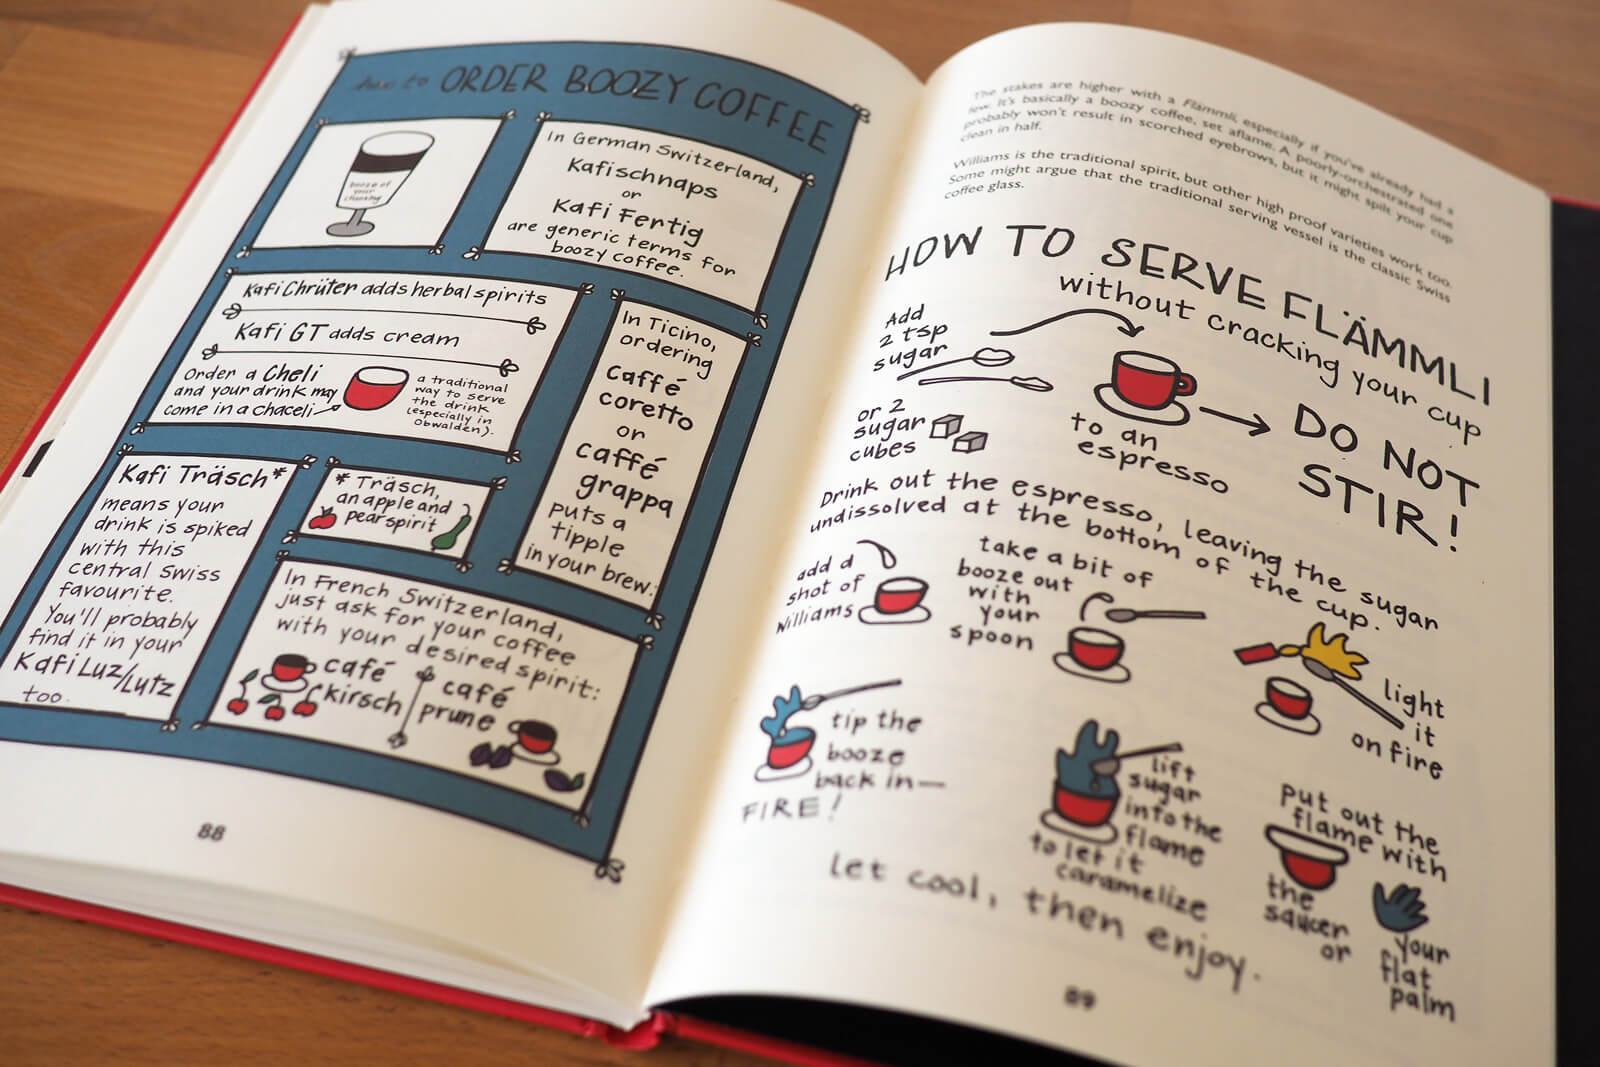 how to ORDER BOOZY COFFEE
booze of
your
choosing
In German Switzerland,
Kafischnaps
or
Kafi Fertig
are generic terms for
boozy coffee.
Kafi Chrüter adds herbal spirits
Kafi GT adds cream
Order a Cheli
and your drink may
come in a chacheli
a traditional
way to serve
the drink
(especially in
Obwalden).
In Ticino,
ordering
caffé
coretto
or
caffé
grappa
puts a
tipple
in your brew.
Kafi Träsch*
means your
drink is spiked
with this
central Swiss
favourite.
You'll probably
find it in your
Kafi Luz/Lutz
too.
* Träsch,
an apple and
pear spirit
In French Switzerland,
just ask for your coffee
with your desired spirit:
café
kirsch
café
prune
88
The stakes are higher with a Flämmli, especially if you've already had a
few. It's basically a boozy coffee, set aflame. A poorly-orchestrated one
probably won't result in scorched eyebrows, but it might split your cup
clean in half.
Williams is the traditional spirit, but other high proof varieties work too.
Some might argue that the traditional serving vessel is the classic Swiss
coffee glass.
HOW TO SERVE FLÄMMLI
without cracking your cup
Add
2 tsp
sugar
or 2
sugar
cubes
to an
espresso
DO NOT
STIR!
Drink out the espresso, leaving the sugar
undissolved at the bottom of the cup.
add a
shot of
Williams
take a bit of
booze out
with
your
spoon
light
it
on fire
tip the
booze
back in—
FIRE!
lift
sugar
into the
flame
to let it
caramelize
put out the
flame with
the
saucer
or
your
flat
palm
let cool, then enjoy.
89